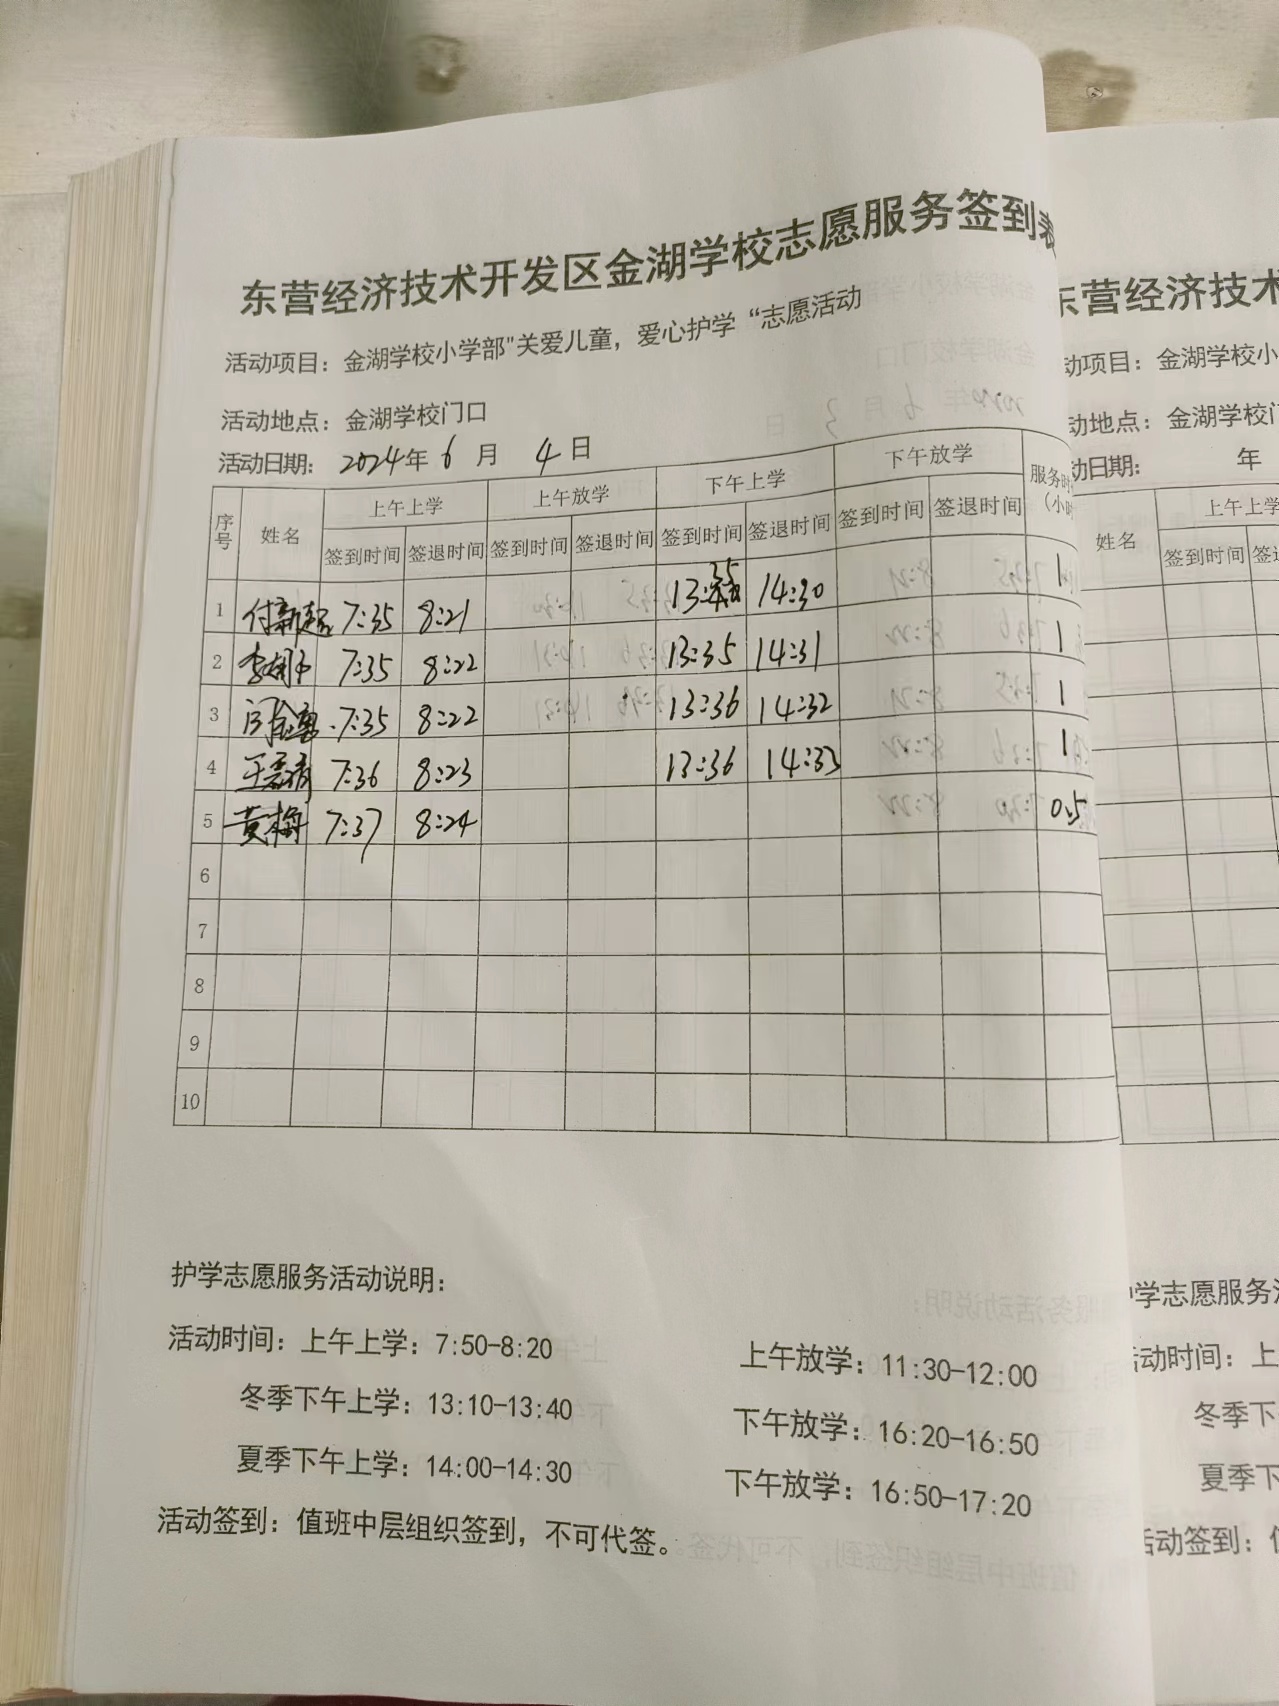 东营经济技术开发区金湖学校志愿服务签到表
活动项目：金湖学校小学部"关爱儿童，爱心护学“志愿活动
活动地点：金湖学校门口
活动日期：2024年 6 月 4 日
序号 姓名 上午上学 上午放学 下午上学 下午放学 服务时 (小时
签到时间 签退时间 签到时间 签退时间 签到时间 签退时间 签到时间 签退时间
1 7:35 8:21 13:35 14:30 1
2 7:35 8:22 13:35 14:31 1
3 7:35 8:22 13:36 14:32 1
4 7:36 8:23 13:36 14:33 1
5 黄梅 7:37 8:24 0.5
6
7
8
9
10
护学志愿服务活动说明：
活动时间：上午上学：7:50-8:20 上午放学：11:30-12:00
冬季下午上学：13:10-13:40 下午放学：16:20-16:50
夏季下午上学：14:00-14:30 下午放学：16:50-17:20
活动签到：值班中层组织签到，不可代签。
东营经济技术
动项目：金湖学校小
动地点：金湖学校门
动日期： 年
姓名 上午上学
签到时间 签
学志愿服务
活动时间：上
冬季下
夏季下
活动签到：